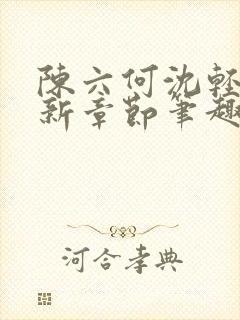 陳六何沈輕
新章節筆趣
河合孝典